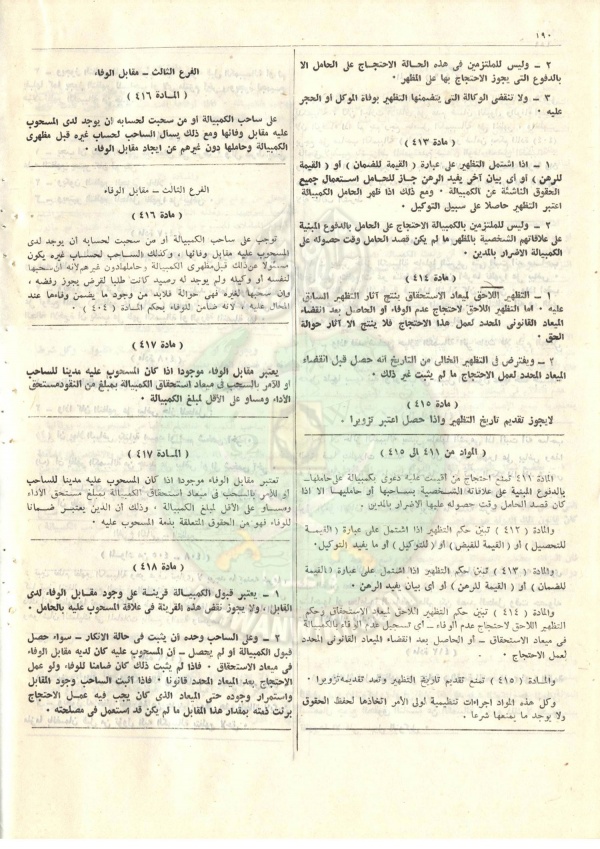 ١٩٠
٢ ــ وليس للملتزمين فى هذه الحالة الاحتجاج على الحامل الا
بالدفوع التى يجوز الاحتجاج بها على المظهر ٠
٣ ــ ولا تنقضى الوكالة التى يتضمنها التظهير بوفاة الموكل أو الحجر
عليه ٠
مادة ( ٤١٣ )
١ ــ اذا اشتمل التظهير على عبارة ( القيمة للضمان ) أو ( القيمة
للرهن ) أو أى بيان آخر يفيد الرهن جاز للحامل استعمال جميع
الحقوق الناشئة عن الكمبيالة ٠ ومع ذلك اذا ظهر الحامل الكمبيالة
اعتبر التظهير حاصلا على سبيل التوكيل ٠
٢ ــ وليس للملتزمين بالكمبيالة الاحتجاج على الحامل بالدفوع المبنية
على علاقاتهم الشخصية بالمظهر ما لم يكن قصد الحامل وقت حصوله على
الكمبيالة الاضرار بالمدين ٠
مادة ( ٤١٤ )
١ ــ التظهير اللاحق لميعاد الاستحقاق ينتج آثار التظهير السابق
عليه ٠ أما التظهير اللاحق لاحتجاج عدم الوفاء أو الحاصل بعد انقضاء
الميعاد القانونى المحدد لعمل هذا الاحتجاج فلا ينتج الا آثار حوالة
الحق ٠
٢ ــ ويفترض فى التظهير الخالى من التاريخ انه حصل قبل انقضاء
الميعاد المحدد لعمل الاحتجاج ما لم يثبت غير ذلك ٠
مادة ( ٤١٥ )
لايجوز تقديم تاريخ التظهير واذا حصل اعتبر تزويرا ٠
المواد من ٤١١ الى ٤١٥ )
المادة ٤١١ تمنع احتجاج من أقيمت عليه دعوى بكمبيالة على حاملها ــ
بالدفوع المبنية على علاقاته الشخصية بساحبها أو حامليها الا اذا
كان قصد الحامل وقت حصوله عليها الاضرار بالمدين ٠
والمادة ( ٤١٢ ) تبين حكم التظهير اذا اشتمل على عبارة ( القيمة
للتحصيل ) أو ( القيمة للقبض ) أو ( للتوكيل ) أو ما يفيد التوكيل ٠
والمادة ( ٤١٣ ) تبين حكم التظهير اذا اشتمل على عبارة ( القيمة
للضمان ) أو ( القيمة للرهن ) أو أى بيان يفيد الرهن ٠
والمادة ( ٤١٤ ) تبين حكم التظهير اللاحق لميعاد الاستحقاق وحكم
التظهير اللاحق لاحتجاج عدم الوفاء ــ أى تسجيل عدم الوفاء بالكمبيالة
فى ميعاد الاستحقاق ــ أو الحاصل بعد انقضاء الميعاد القانونى المحدد
لعمل الاحتجاج ٠
والمــادة ( ٤١٥ ) تمنع تقديم تاريخ التظهير وتعد تقديمه تزويرا ٠
وكل هذه المواد اجراءات تنظيمية لولى الأمر اتخاذها لحفظ الحقوق
ولا يوجد ما يمنعها شرعا ٠
الفرع الثالث ــ مقابل الوفاء
( المـادة ٤١٦ )
على صاحب الكمبيالة أو من سحبت لحسابه أن يوجد لدى المسحوب
عليه مقابل وفائها ومع ذلك يسأل الساحب لحساب غيره قبل مظهرى
الكمبيالة وحاملها دون غيرهم عن ايجاد مقابل الوفاء ٠
الفرع الثالث ــ مقابل الوفاء
( مادة ٤١٦ )
توجب على ساحب الكمبيالة أو من سحبت لحسابه أن يوجد لدى
المسحوب عليه مقابل وفائها ، وكذلك الساحب لحساب غيره يكون
مسئولا عن ذلك قبل مظهرى الكمبيالة وحاملها دون غيرهم لانه ان سحبها
لنفسه أو وكيله ولم يوجد له رصيد كانت طلبا لقرض يجوز رفضه ،
وان سحبها لغيره فهى حوالة فلابد من وجود ما يضمن وفاءها عند
المحال عليه ، لانه ضامن للوفاء بحكم المادة ( ٤٠٤ )
( مادة ٤١٧ )
يعتبر مقابل الوفاء موجودا اذا كان المسحوب عليه مدينا للساحب
أو للآمر بالسحب فى ميعاد استحقاق الكمبيالة بمبلغ من النقود مستحق
الأداء ومساو على الأقل لمبلغ الكمبيالة ٠
( المـادة ٤١٧ )
تعتبر مقابل الوفاء موجودا اذا كان المسحوب عليه مدينا للساحب
أو للآمر بالسحب فى ميعاد استحقاق الكمبيالة بمبلغ مستحق الأداء
ومساو على الأقل لمبلغ الكمبيالة ، وذلك أن الدين يعتبر ضمانا
للوفاء فهو من الحقوق المتعلقة بذمة المسحوب عليه ٠
مادة ( ٤١٨ )
١ ــ يعتبر قبول الكمبيالة قرينة على وجود مقابل الوفاء لدى
القابل ، ولا يجوز نقض هذه القرينة فى علاقة المسحوب عليه بالحامل ٠
٢ ــ وعلى الساحب وحده أن يثبت فى حالة الانكار ــ سواء حصل
قبول الكمبيالة أو لم يحصل ــ ان المسحوب عليه كان لديه مقابل الوفاء
فى ميعاد الاستحقاق ٠ فاذا لم يثبت ذلك كان ضامنا للوفاء ولو عمل
الاحتجاج بعد الميعاد المحدد قانونا ٠ فاذا أثبت الساحب وجود المقابل
واستمرار وجوده حتى الميعاد الذى كان يجب فيه عمـل الاحتجاج
برئت ذمته بمقدار هذا المقابل ما لم يكن قد استعمل فى مصلحته ٠